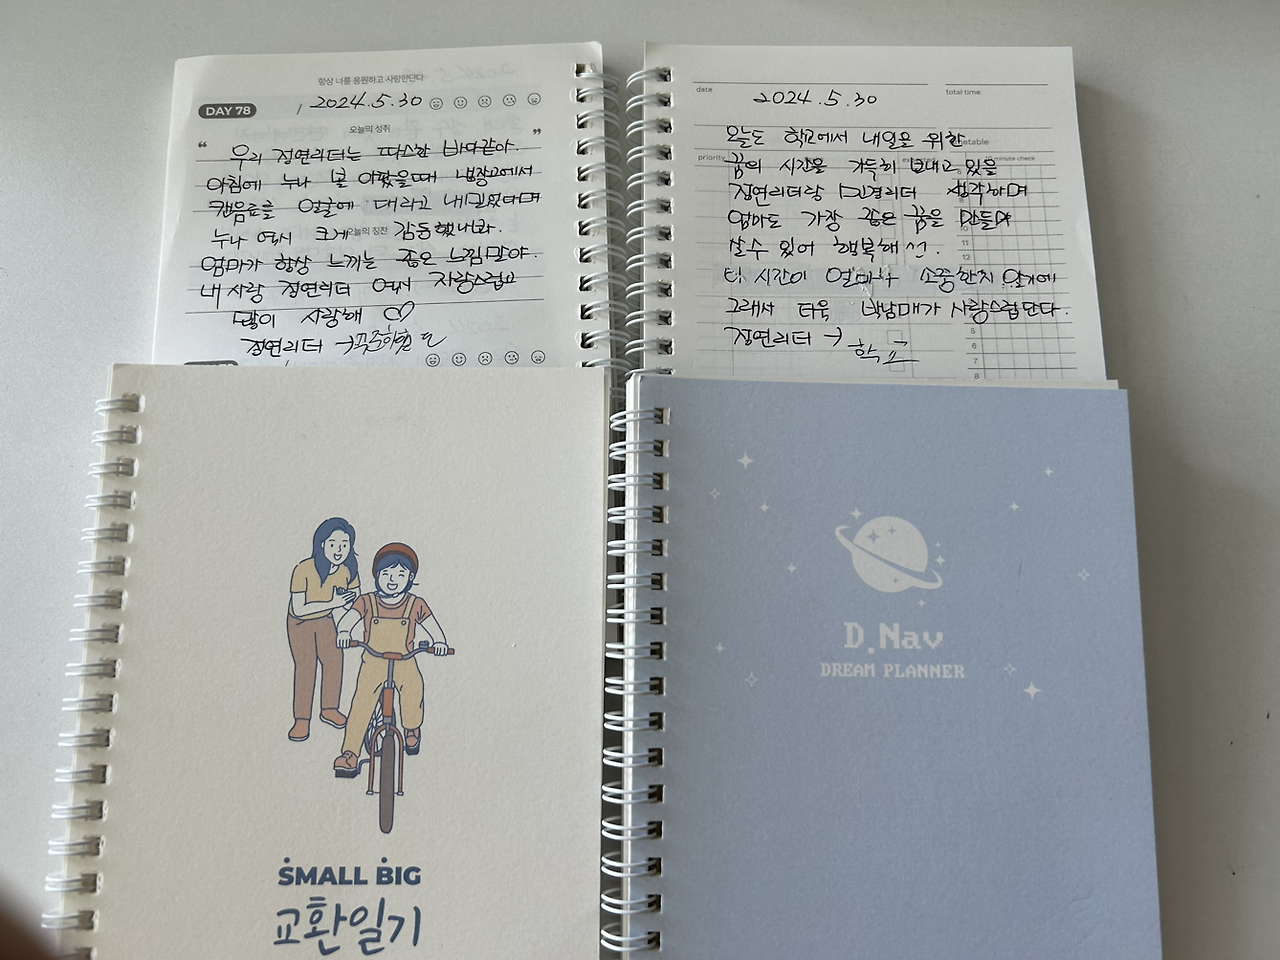 항상 너를 응원하고 사랑한단다
DAY 78 / 2024.5.30
오늘의 성취
“ ”
우리 정연리더는 따스한 바다같아.
아침에 누나 볼 아팠을때 냉장고에서
캔음료를 얼굴에 대라고 내밀었다며
오늘의 칭찬
누나 역시 크게 감동했나봐.
엄마가 항상 느끼는 좋은 느낌말야.
내사랑 정연리더 역시 자랑스럽고
많이 사랑해 ♡
정연리더 →
date
total time
2024.5.30
priority
timetable
minute check
오늘도 학교에서 내일을 위한
꿈의 시간을 가득히 보내고 있을
정연리더랑 민경리더 생각하며
엄마도 가장 좋은 꿈을 만들며
살수 있어 행복해선.
이 시간이 얼마나 소중한지 알기에
그래서 더욱 박남매가 자랑스럽단다.
정연리더 → 학교
10
11
12
5
6
7
8
SMALL BIG
교환일기
D.Nav
DREAM PLANNER